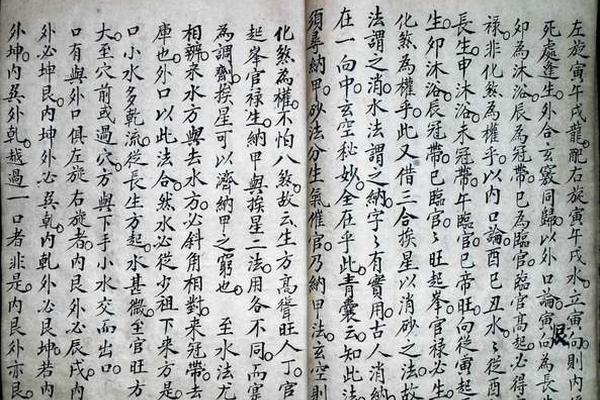 左旋寅午戌龍配右旋寅午戌水立寅向則內
死處逢生外合玄竅同歸以外口論寅向為長
卯為沐浴辰為冠帶巳為臨官臨官高起必得
祿非化煞為權乎以內口論酉巳丑水〻從
長生申沐浴未冠帶午臨官巳帝旺向從寅起
生卯沐浴辰冠帶巳臨官〻旺起峯官祿必生
化煞為權乎此又借三合挨星以消砂之法故
法謂之消水法謂之納字〻有實用古人消納
在一向中玄空秘妙全在乎此青囊云知此法
須尋納甲砂法分生氣催官乃納甲法玄空則
化煞為權不怕八煞故云生方高聳旺人丁官
起峯官祿生納甲與挨星二法用各不同而寔
為調劑挨星可以濟納甲之窮也 至水法尤
相辦來水方與去水方必斜角相對來冠帶去
庫也外口以此法合然水必從少祖下來方是
口小水多乾流從長生方起水甚微至官旺方
大至穴前或過穴方與下手小水交而出口
口有與外口俱左旋右旋者內艮外必辰戌內
外必坤艮內坤外必巽乾內乾外必艮坤若內
外坤內巽外乾越過一口者非是內艮外亦艮